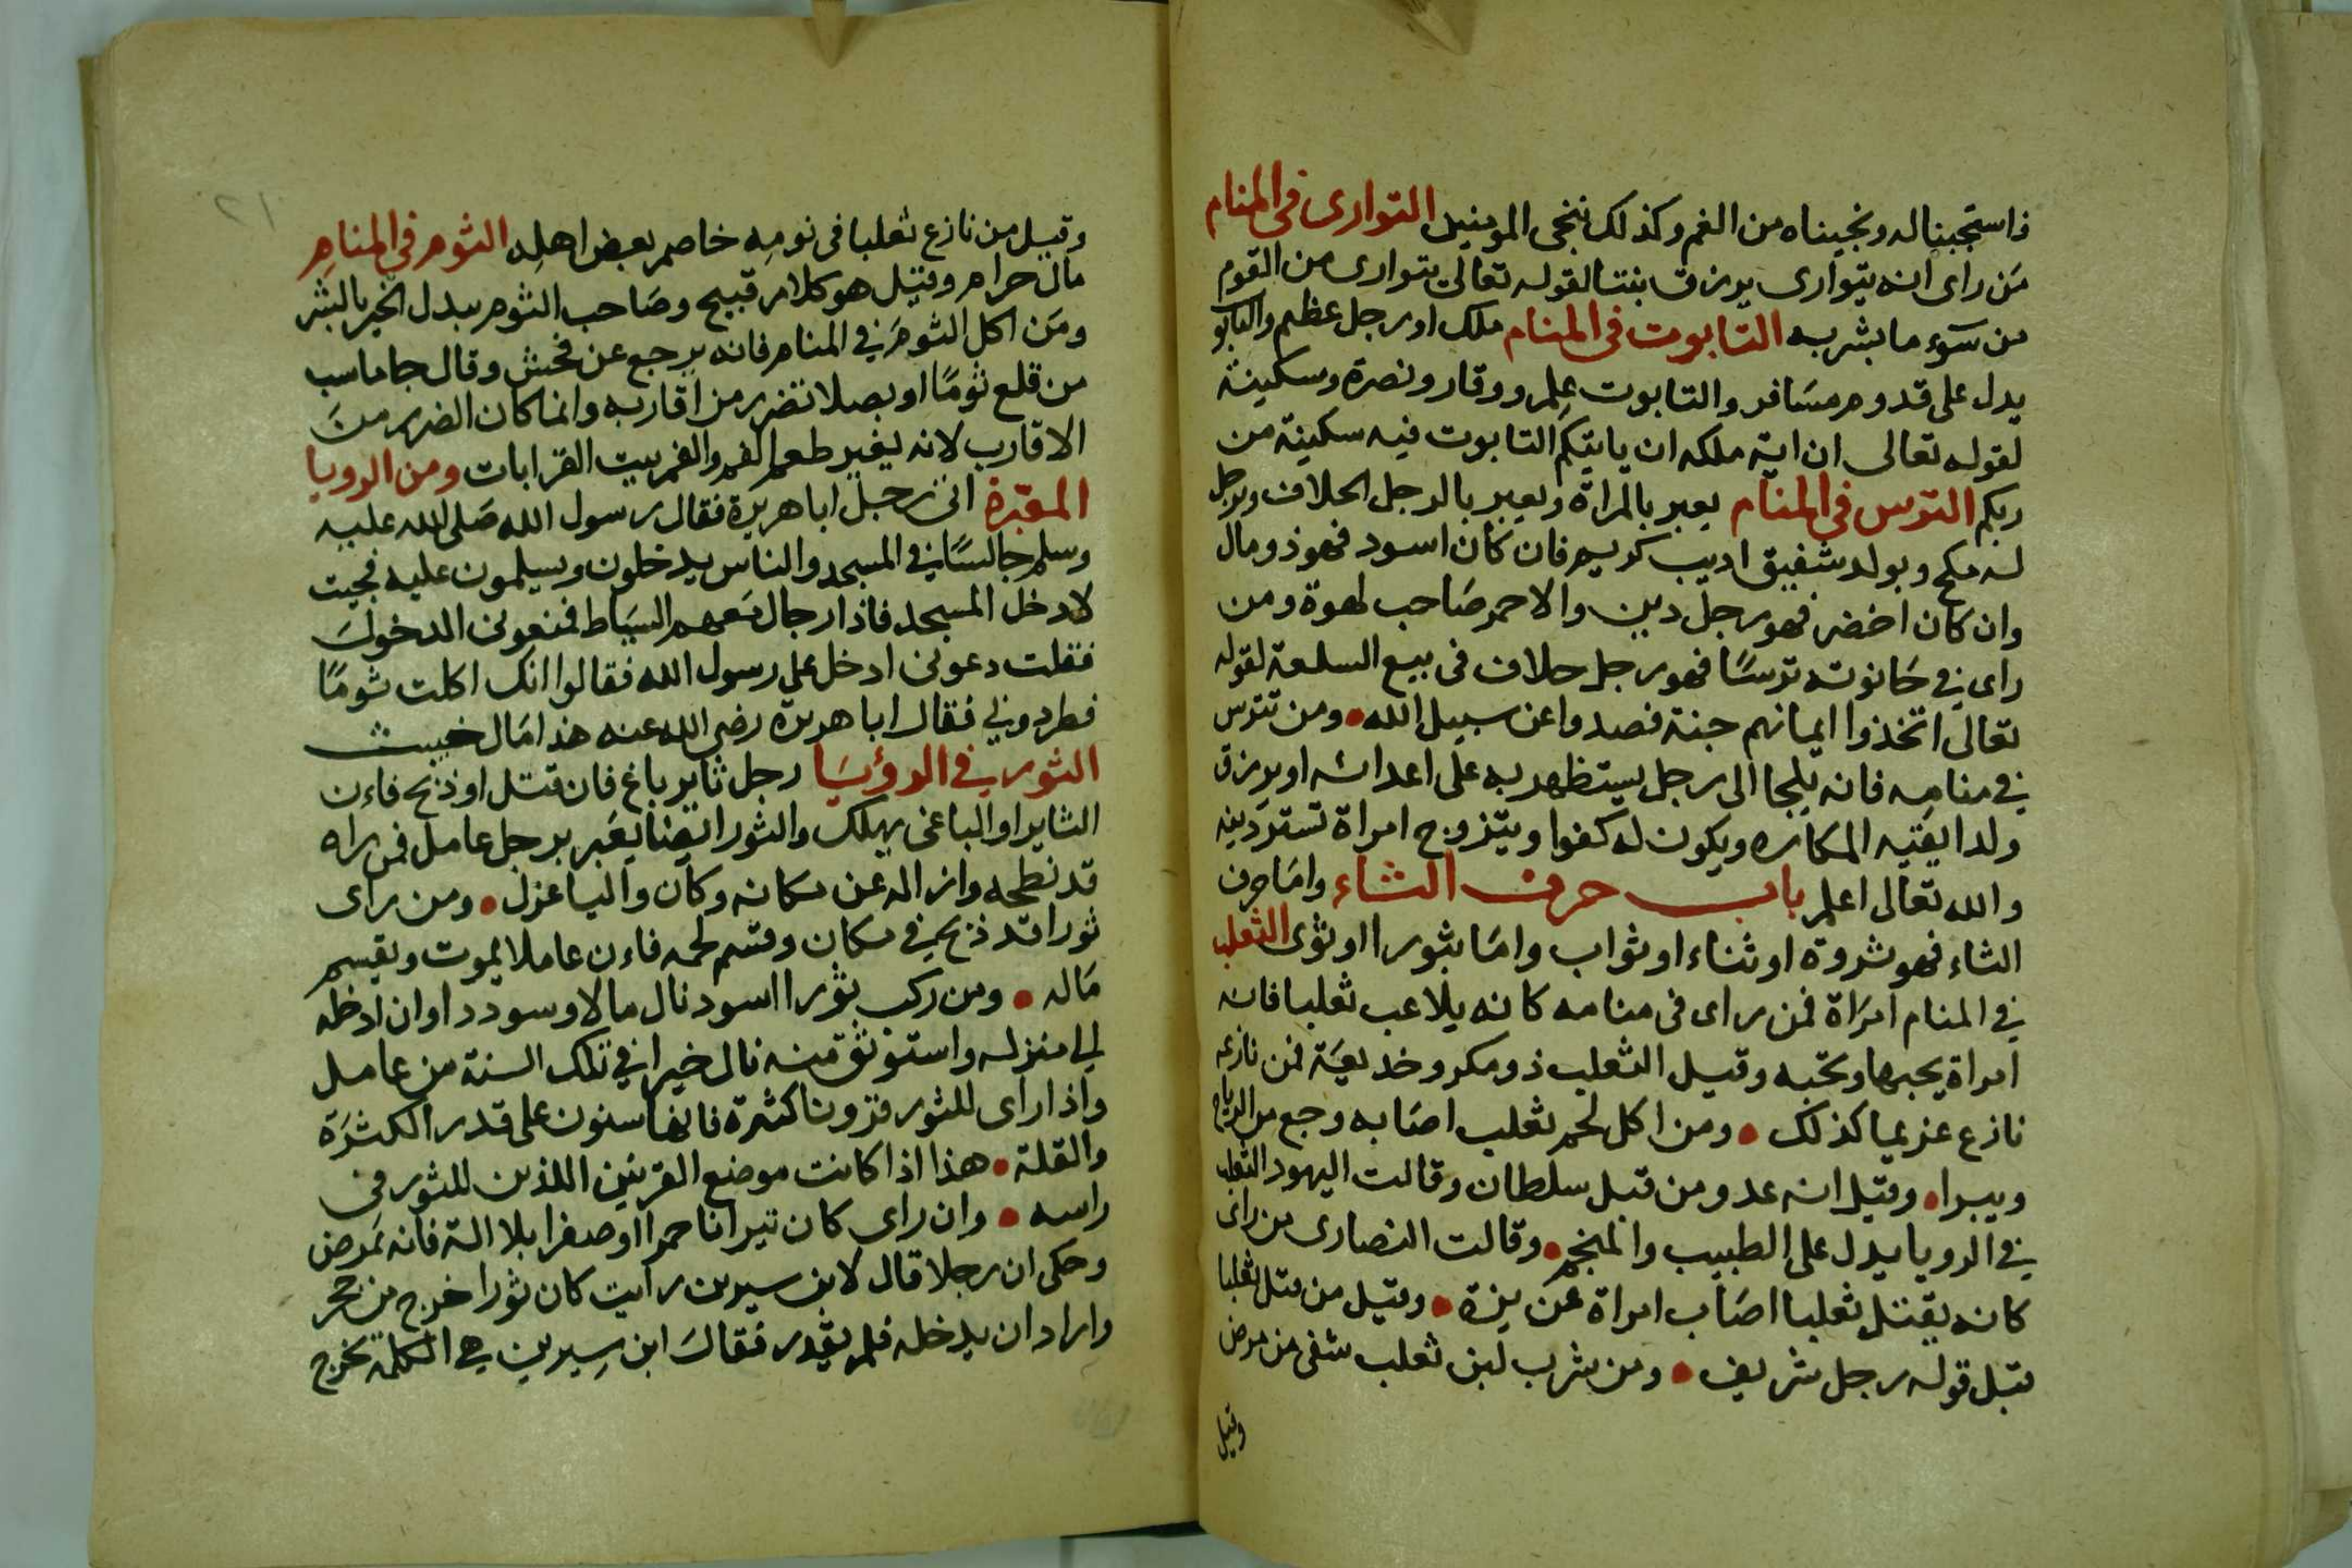 فاستجبنا له ونجيناه من الغم وكذلك ننجى المومنين التوارى فى المنام
من راى انه يتوارى يرزق بنتا لقوله تعالى يتوارى من القوم
من سوء ما بشر به التابوت فى المنام ملك او رجل عظيم والتابو
يدل على قدوم مسافر والتابوت علم ووقار ونصرة وسكينة
لقوله تعالى ان اية ملكه ان ياتيكم التابوت فيه سكينة من
ربكم الترس فى المنام يعبر بالمراة ويعبر بالرجل الحلاف وبرجل
له مكح وبولد شفيق اديب كريم فان كان اسود فهو ذو مال
وان كان اخضر فهو رجل دين والاحمر صاحب لهوة ومن
راى في حانوته ترسا فهو رجل حلاف فى بيع السلعة لقوله
تعالى اتخذوا ايمانهم جنة فصدوا عن سبيل الله • ومن تترس
في منامه فانه يلجا الى رجل يستظهر به على اعدائه او يرزق
ولدا يقيه المكاره ويكون له كفوا ويتزوج امراة تستر دينه
والله تعالى اعلم باب حرف الثاء واما حرف
الثاء فهو ثروة او ثناء او ثواب واما بثورا او نوى الثعلب
في المنام امراة فمن راى فى منامه كانه يلاعب ثعلبا فانه
امراة يحبها وتحبه وقيل الثعلب ذو مكر وخديعة فمن نازعه
نازع غريما كذلك • ومن اكل لحم ثعلب اصابه وجع من الرياح
ويبرا • وقيل انه عدو من قبل سلطان وقالت اليهود الثعلب
في الرويا يدل على الطبيب والمنجم • وقالت النصارى من راى
كانه يقتل ثعلبا اصاب امراة عزيزة • وقيل من قتل ثعلبا
قبل قوله رجل شريف • ومن شرب لبن ثعلب شفى من مرض
وقيل
٢١
وقيل من نازع ثعلبا فى نومه خاصم بعض اهله الثوم في المنام
مال حرام وقيل هو كلام قبيح وصاحب الثوم يبدل الخير بالشر
ومن اكل الثوم في المنام فانه يرجع عن فحش وقال جاماسب
من قلع ثوما او بصلا تضرر من اقاربه وانما كان الضرر من
الاقارب لانه يغير طعم الفم والفم بيت القرابات ومن الرويا
المعبرة اتى رجل ابا هريرة فقال رسول الله صلى الله عليه
وسلم جالسا في المسجد والناس يدخلون ويسلمون عليه فجيت
لادخل المسجد فاذا رجال معهم السياط فمنعونى الدخول
فقلت دعونى ادخل على رسول الله فقالوا انك اكلت ثوما
فطردوني فقال ابا هريرة رضى الله عنه هذا مال خبيث
الثور في الرؤيا رجل ثاير باغ فان قتل او ذبح فاءن
الثاير او الباغى يهلك والثور ايضا يعبر برجل عامل فمن راه
قد نطحه وازاله عن مكانه وكان واليا عزل • ومن راى
ثورا قد ذبح في مكان وقسم لحمه فاءن عاملا يموت ويقسم
ماله • ومن ركب ثورا اسود نال مالا وسوددا وان ادخله
الى منزله واستوثق منه نال خيرا في تلك السنة من عامل
واذا راى للثور قرونا كثيرة فانها سنون على قدر الكثرة
والقلة • هذا اذا كانت موضع القرنين اللذين للثور فى
راسه • وان راى كان تيرانا حمرا او صفرا بلا الة فانه يمرض
وحكى ان رجلا قال لابن سيرين رايت كان ثورا خرج من جحر
واراد ان يدخله فلم يقدر فقال ابن سيرين هي الكلمة تخرج